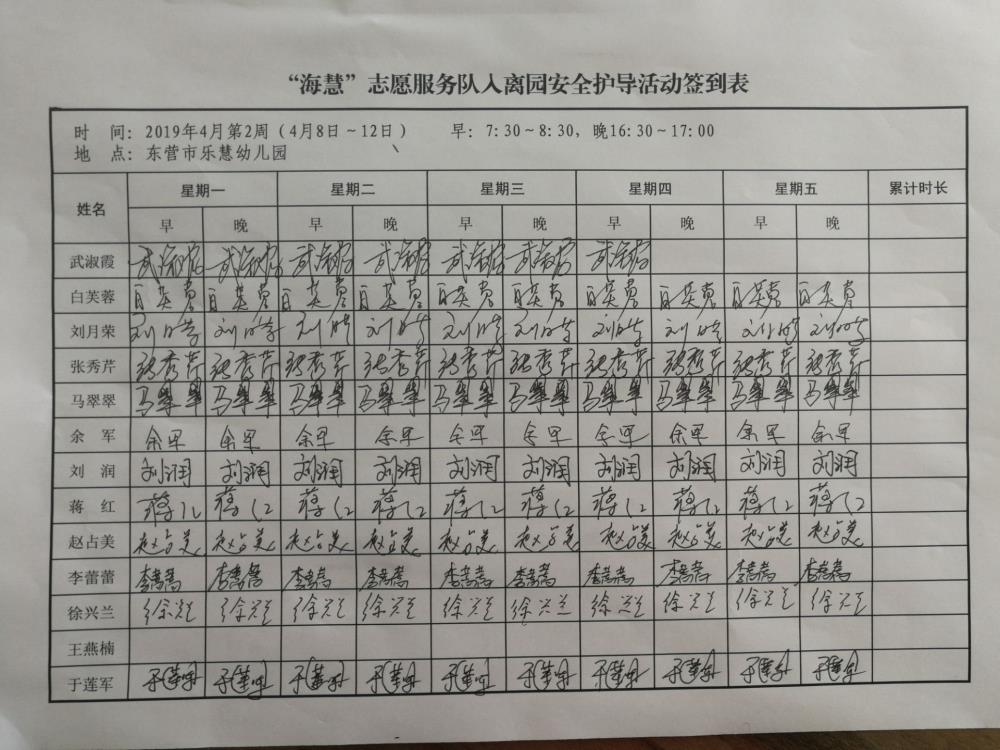 “海慧”志愿服务队入离园安全护导活动签到表
时 间：2019年4月第2周（4月8日～12日） 早：7:30～8:30，晚16:30～17:00
地 点：东营市乐慧幼儿园
姓名 星期一 星期二 星期三 星期四 星期五 累计时长
早 晚 早 晚 早 晚 早 晚 早 晚
武淑霞 武淑霞 武淑霞 武淑霞 武淑霞 武淑霞 武淑霞 武淑霞
白芙蓉 白芙蓉 白芙蓉 白芙蓉 白芙蓉 白芙蓉 白芙蓉 白芙蓉 白芙蓉 白芙蓉 白芙蓉
刘月荣 刘月荣 刘月荣 刘月荣 刘月荣 刘月荣 刘月荣 刘月荣 刘月荣 刘月荣 刘月荣
张秀芹 张秀芹 张秀芹 张秀芹 张秀芹 张秀芹 张秀芹 张秀芹 张秀芹 张秀芹 张秀芹
马翠翠 马翠翠 马翠翠 马翠翠 马翠翠 马翠翠 马翠翠 马翠翠 马翠翠 马翠翠 马翠翠
余 军 余军 余军 余军 余军 余军 余军 余军 余军 余军 余军
刘 润 刘润 刘润 刘润 刘润 刘润 刘润 刘润 刘润 刘润 刘润
蒋 红 蒋红 蒋红 蒋红 蒋红 蒋红 蒋红 蒋红 蒋红 蒋红 蒋红
赵占美 赵占美 赵占美 赵占美 赵占美 赵占美 赵占美 赵占美 赵占美 赵占美 赵占美
李蕾蕾 李蕾蕾 李蕾蕾 李蕾蕾 李蕾蕾 李蕾蕾 李蕾蕾 李蕾蕾 李蕾蕾 李蕾蕾 李蕾蕾
徐兴兰 徐兴兰 徐兴兰 徐兴兰 徐兴兰 徐兴兰 徐兴兰 徐兴兰 徐兴兰 徐兴兰 徐兴兰
王燕楠
于莲军 于莲军 于莲军 于莲军 于莲军 于莲军 于莲军 于莲军 于莲军 于莲军 于莲军